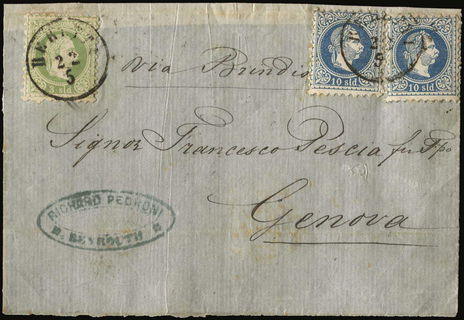 BERUT
22
5
3 sld
10 sld
10 sld
22
5
via Brindisi
Signor Francesco Pescia fu Gpo
Genova
RICHARD PEDRONI
BEYROUTH